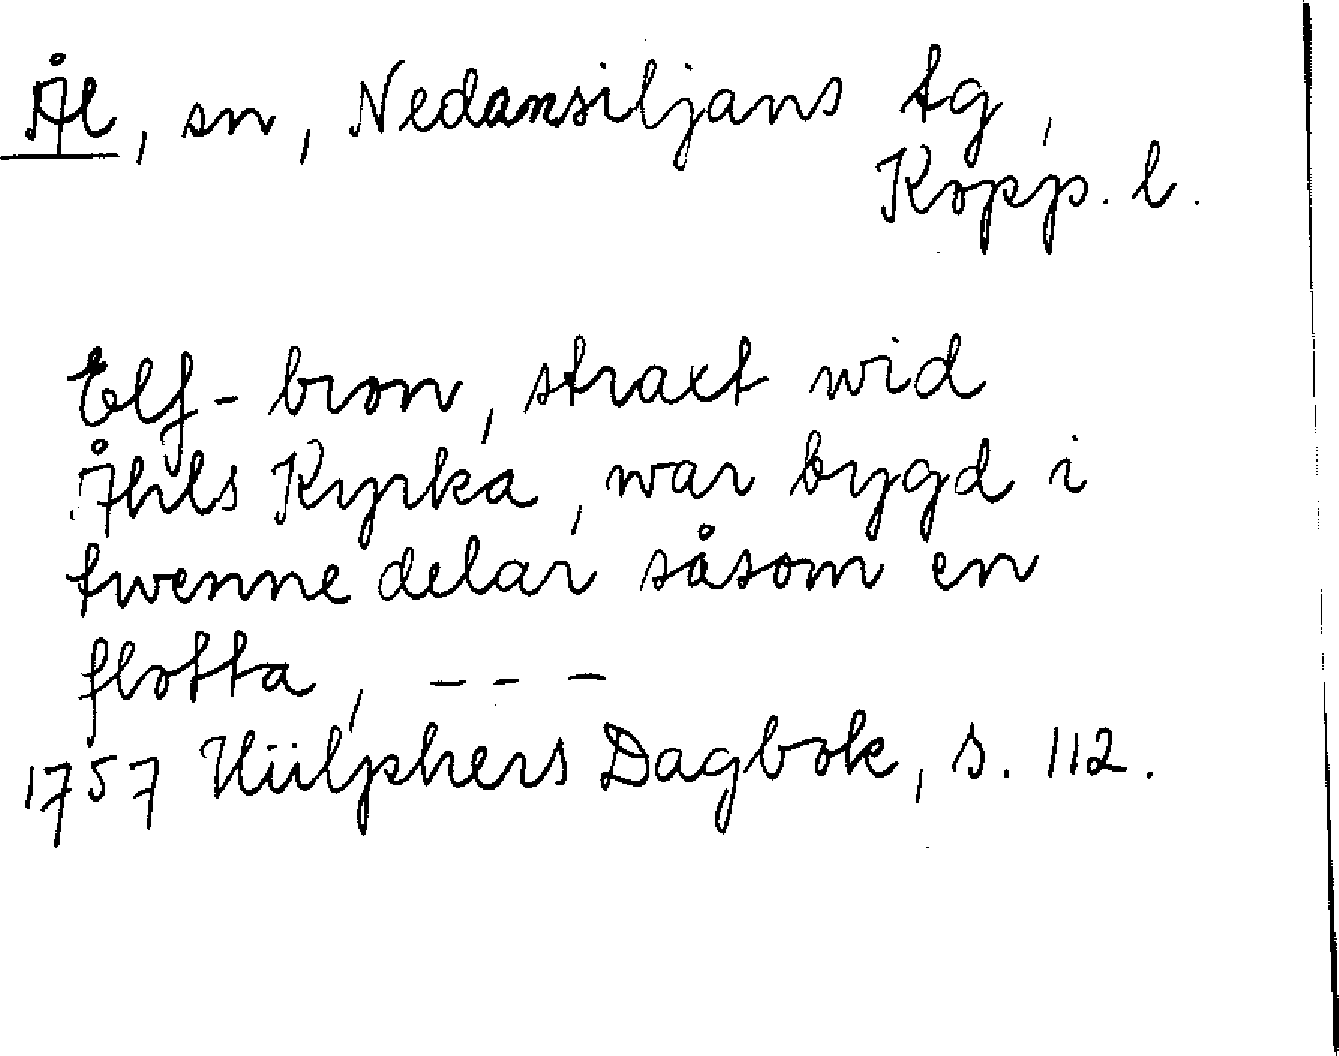 Ål, sn, Nedansiljans tg,
Kopp. l.
Elf-bron, straxt wid
Åhls Kyrka, war bygd i
twenne delar såsom en
flotta, - - -
1757 Hülphers Dagbok, s. 112.